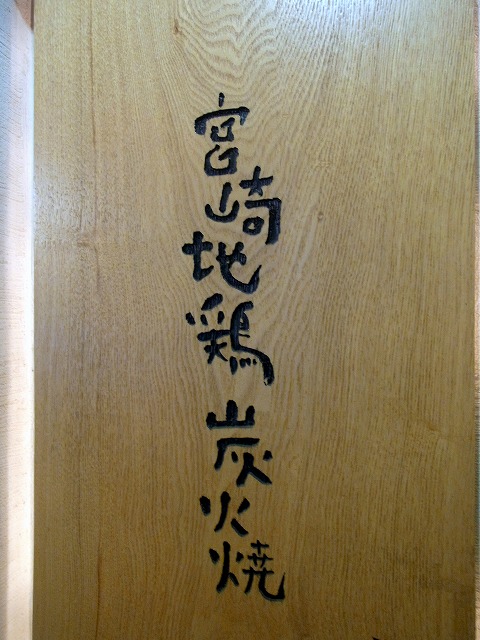 宮崎地鶏炭火焼